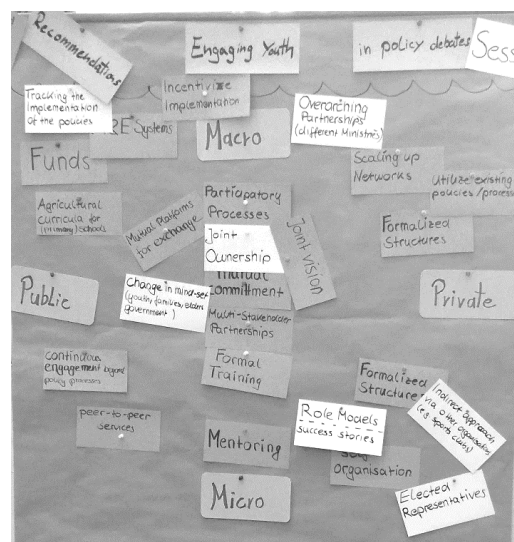 Recommendations
Engaging Youth
in policy debates
Sess
Tracking the
Implementation
of the policies
Incentivize
Implementation
Overarching
Partnerships
(different Ministries)
Systems
Macro
Funds
Scaling up
Networks
Utilize existing
policies/process
Agricultural
curricula for
(primary) schools
Mutual Platforms
for exchange
Participatory
Processes
Joint vision
Formalized
Structures
Joint
Ownership
Public
Change in mind-set
(youth, families, elders
government)
Mutual
Commitment
Private
Multi-Stakeholder
Partnerships
continuous
engagement beyond
policy processes
Formal
Training
Formalized
Structures
Indirect approach
via other organisations
(e.g. sports clubs)
peer-to-peer
services
Role Models
success stories
Mentoring
Self
Organisation
Micro
Elected
Representatives